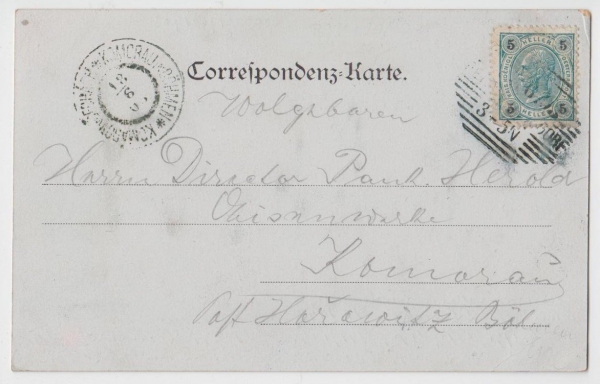 Correspondenz-Karte.
Wolgeboren
Herrn Director Paul Herold
Eisenwerke
Komorau
Post Hořowitz Böh.
KOMORAU
BÖHMEN
KOMAROV
5 HELLER 5
5 HELLER 5
3-5N